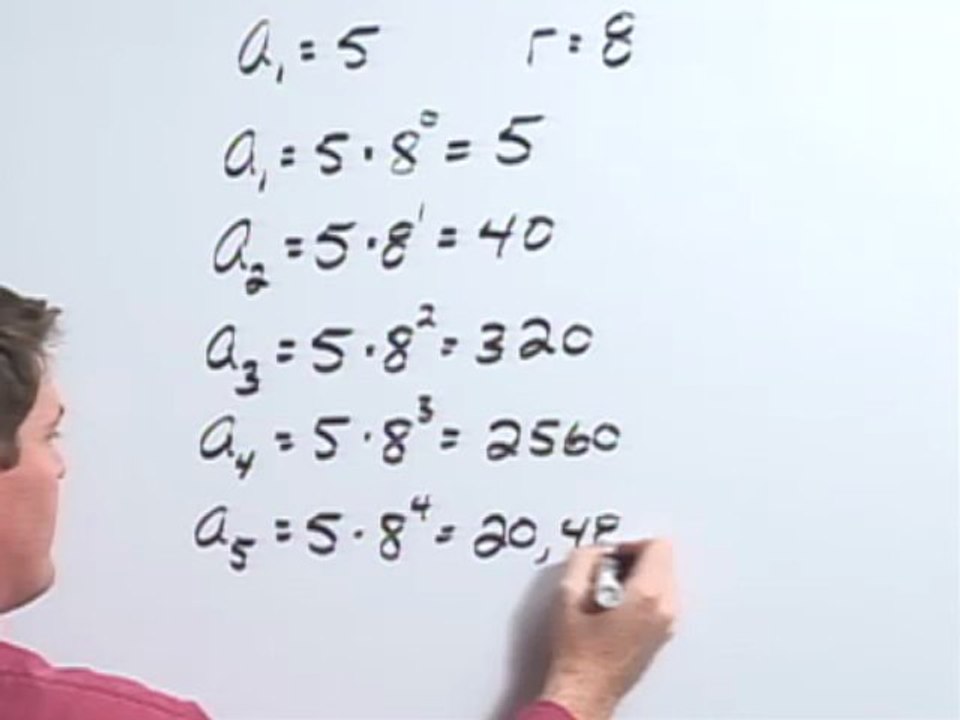 a₁ = 5 r = 8
a₁ = 5 · 8⁰ = 5
a₂ = 5 · 8¹ = 40
a₃ = 5 · 8² = 320
a₄ = 5 · 8³ = 2560
a₅ = 5 · 8⁴ = 20,48